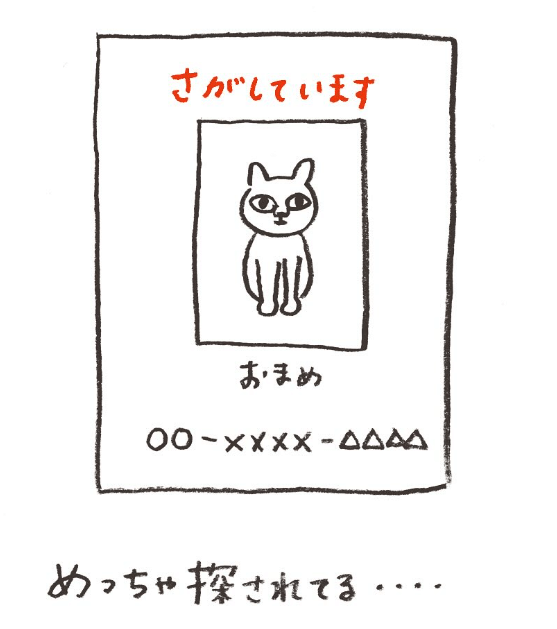 さがしています
おまめ
○○-××××-△△△△
めっちゃ探されてる・・・・